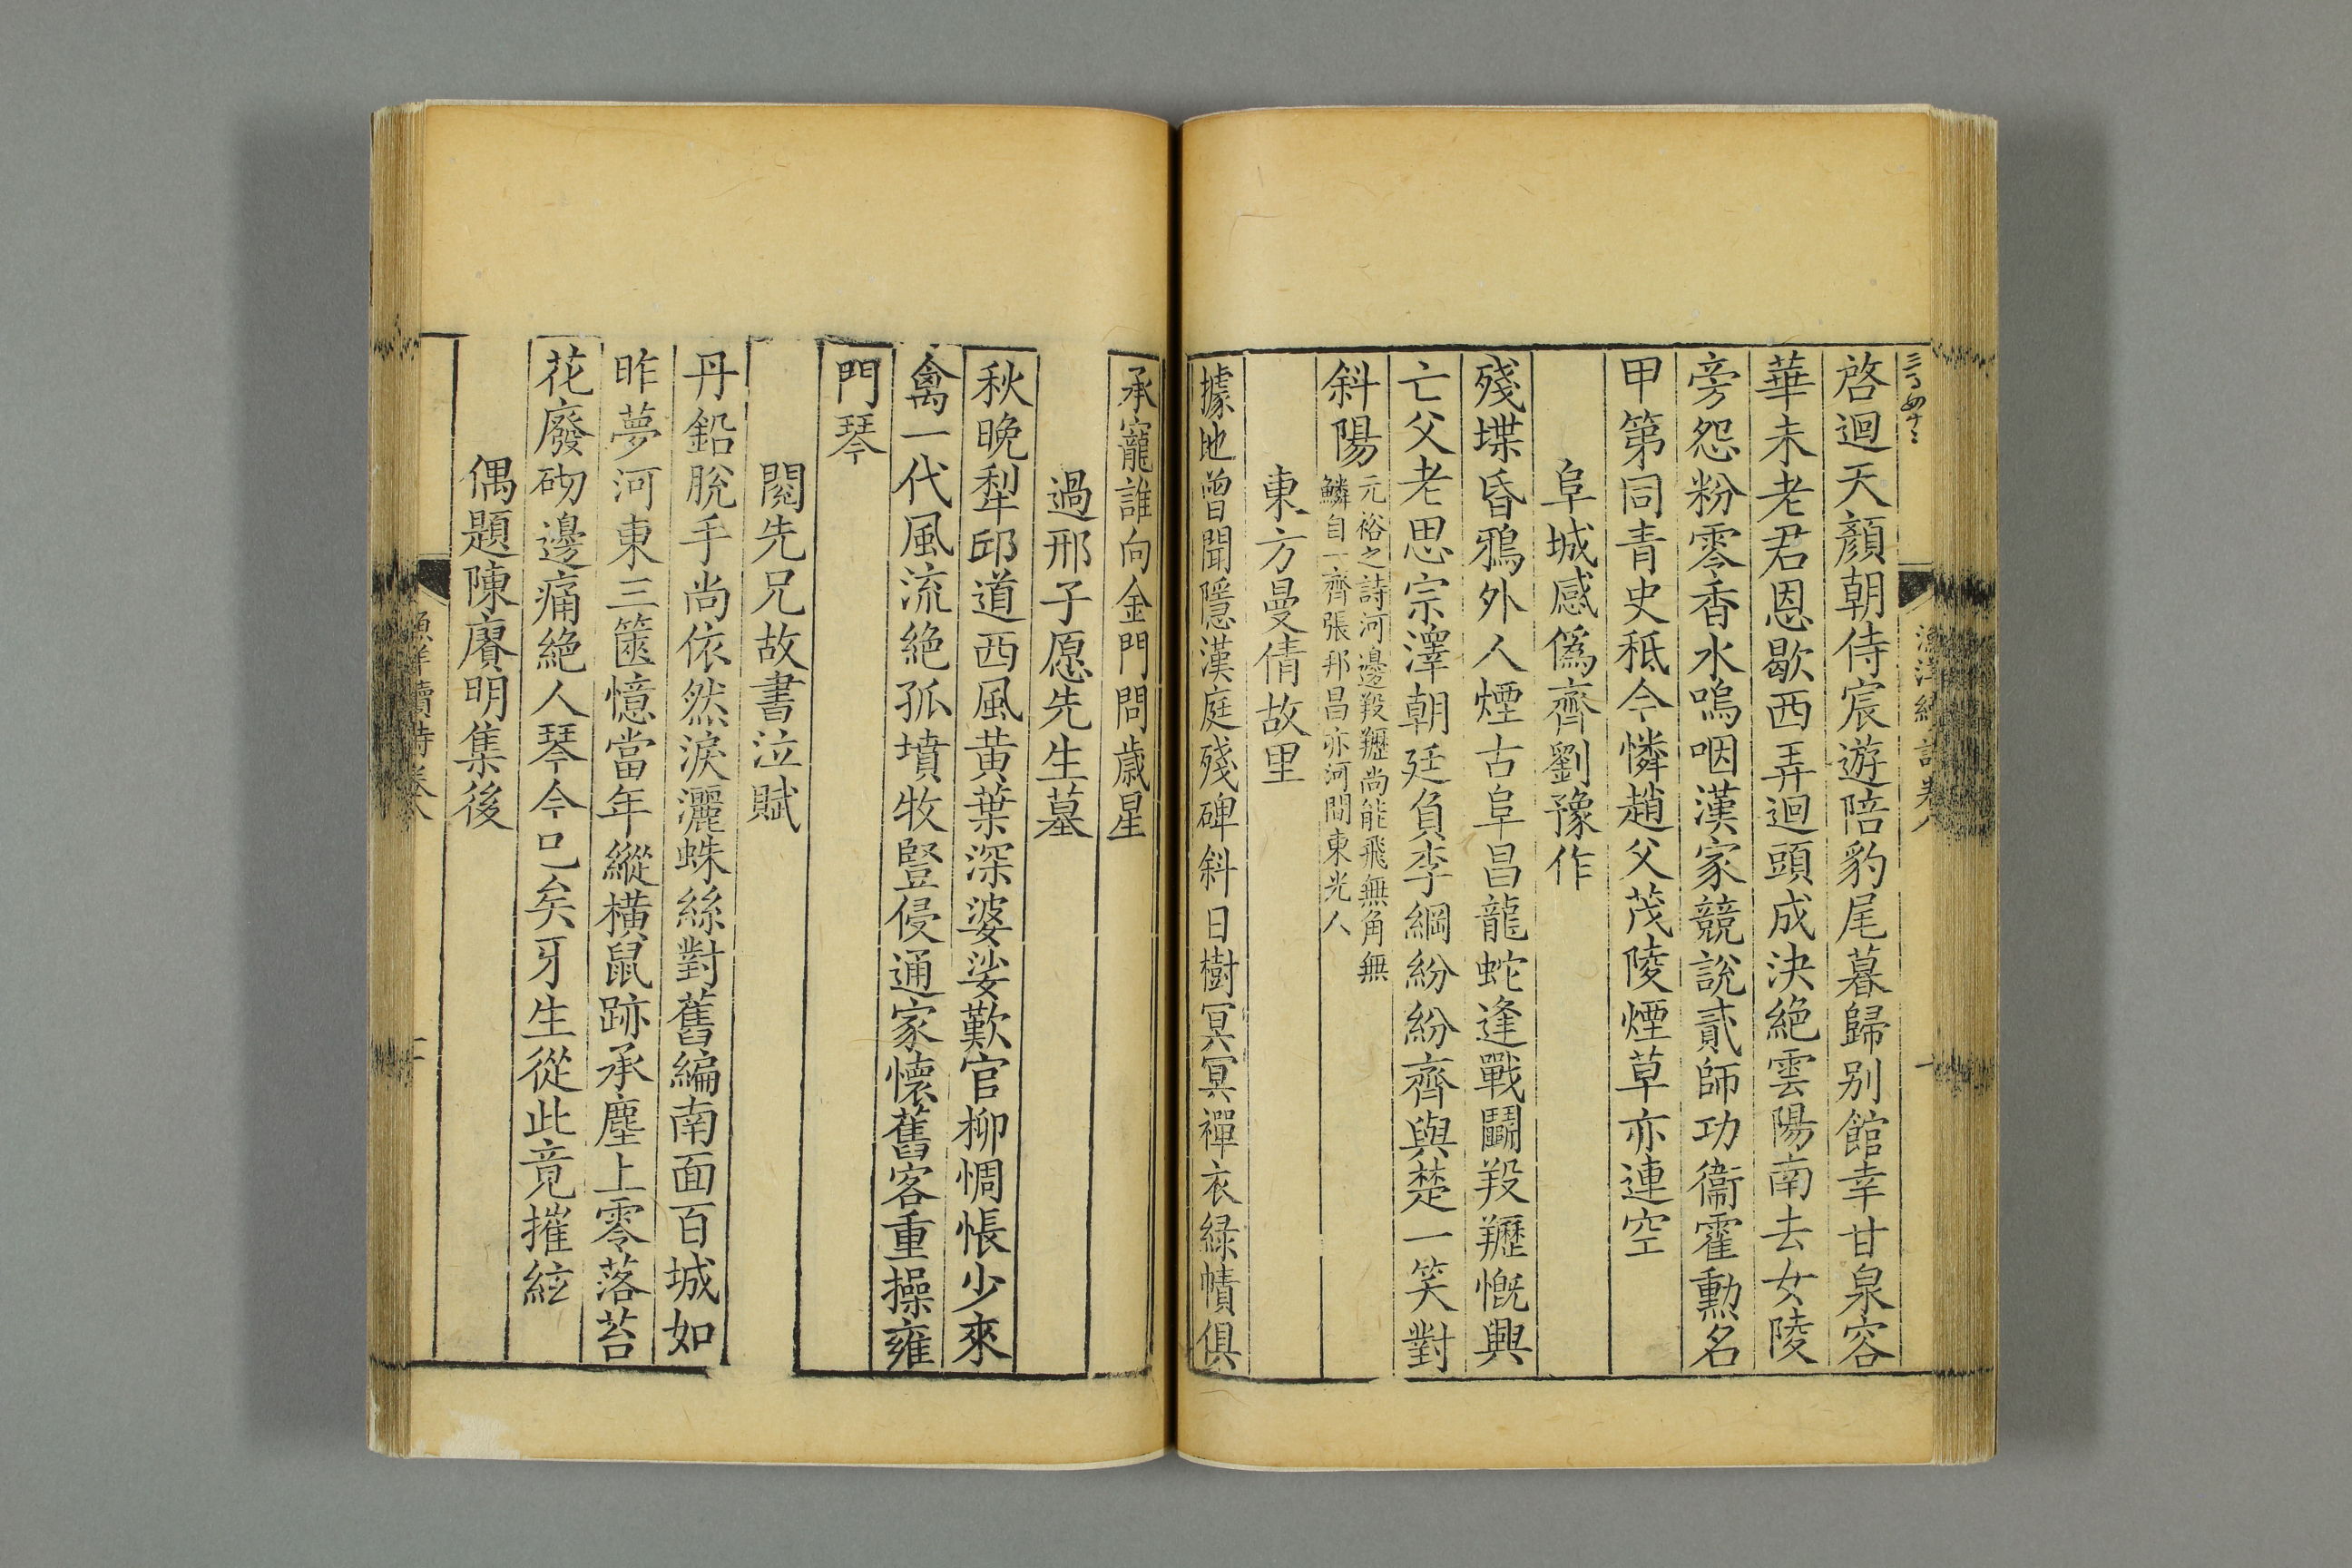 啓迴天顏朝侍宸遊陪豹尾暮歸别館幸甘泉容
華未老君恩歇西弄迴頭成決絶雲陽南去女陵
旁怨粉零香水嗚咽漢家競說貳師功衞霍勳名
甲第同青史秪今憐趙父茂陵煙草亦連空
阜城感僞齊劉豫作
殘堞昏鴉外人煙古阜昌龍蛇逢戰鬬羖𦍠慨興
亡父老思宗澤朝廷負李綱紛紛齊與楚一笑對
斜陽
元裕之詩河邊羖𦍠尚能飛無角無
鱗自一齊張邦昌亦河間東光人
東方曼倩故里
據地曾聞隱漢庭殘碑斜日樹冥冥襌衣緑幘俱
承寵誰向金門問歲星
過邢子愿先生墓
秋晚犁邱道西風黄葉深婆娑歎官柳惆悵少來
禽一代風流絶孤墳牧豎侵通家懷舊客重操雍
門琴
閱先兄故書泣賦
丹鉛脫手尚依然淚灑蛛絲對舊編南面百城如
昨夢河東三篋憶當年縱橫鼠跡承塵上零落苔
花廢砌邊痛絶人琴今已矣牙生從此竟摧絃
偶題陳賡明集後
漁洋續詩卷八